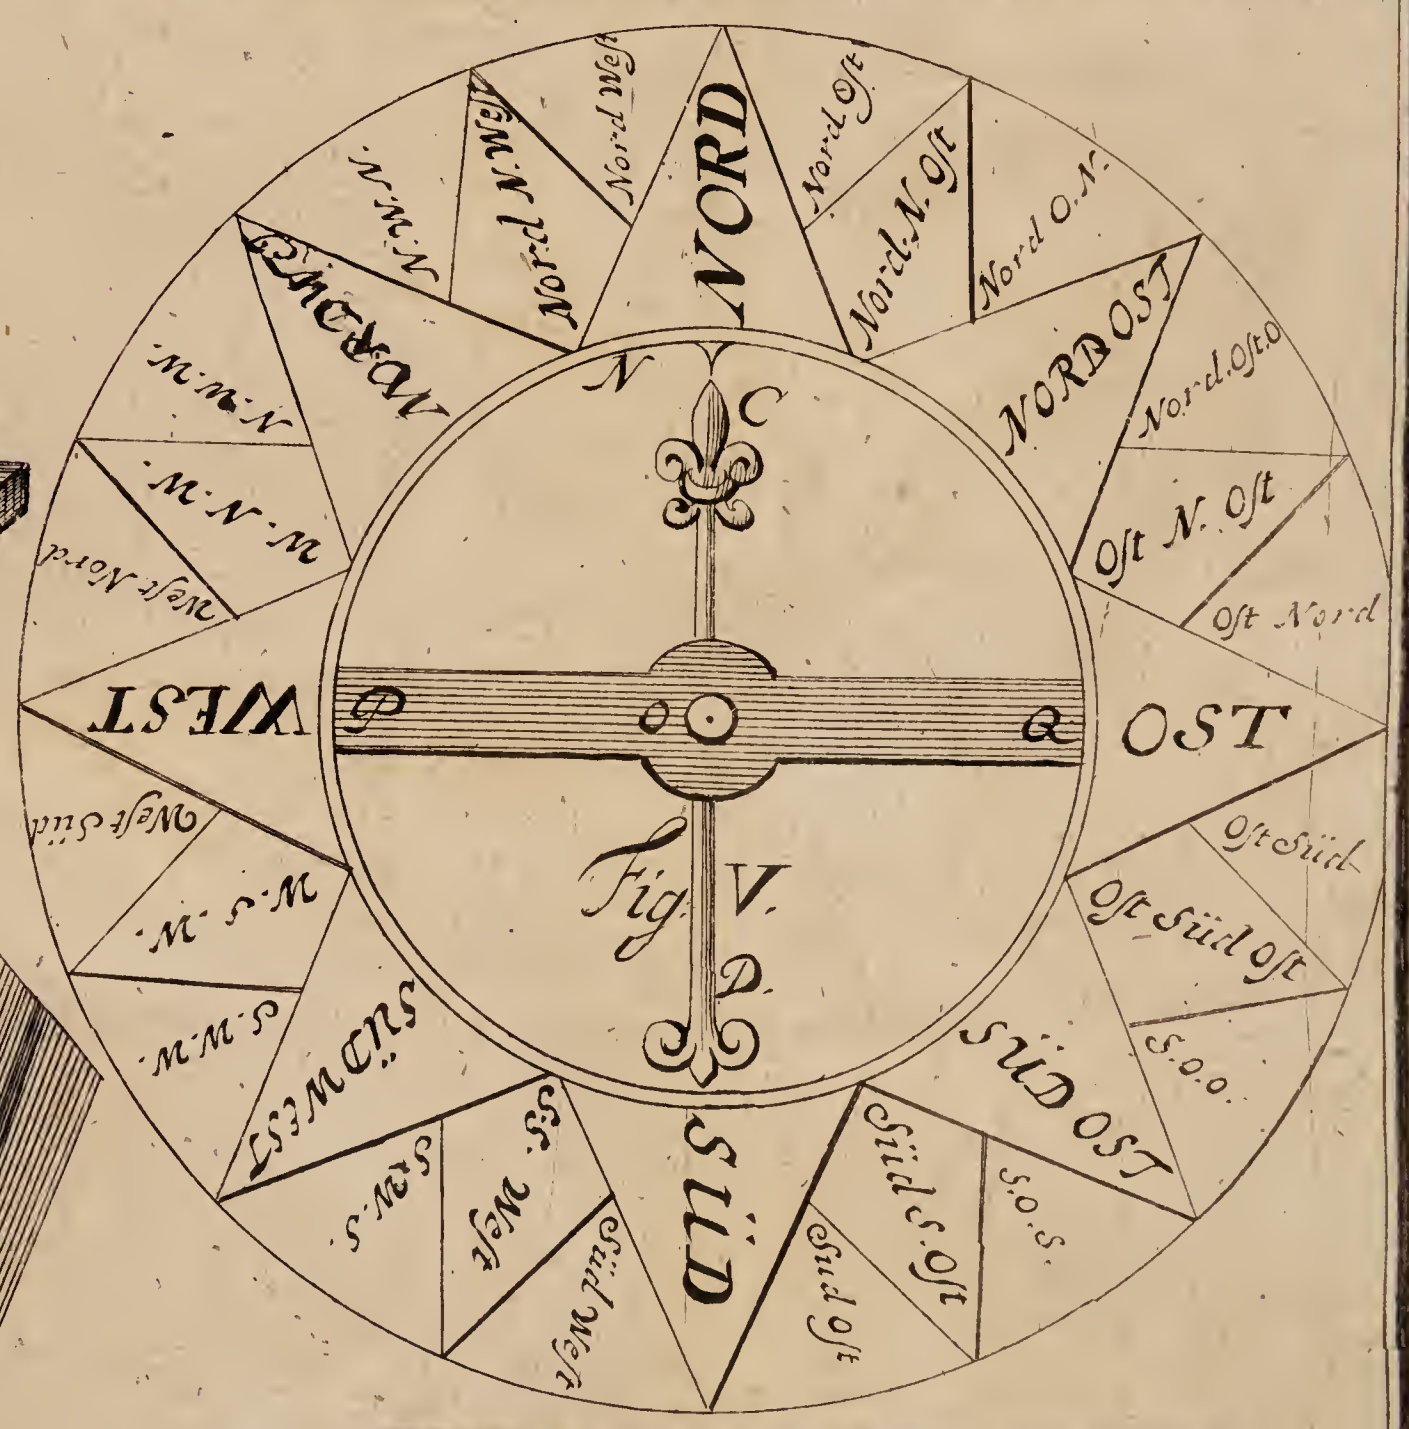 NORD
Nord Oſt
Nord. N. Oſt
Nord O. N.
NORD OST
Nord. Oſt. O
Oſt N. Oſt
Oſt Nord
OST
Oſt Süd
Oſt Süd Oſt
S.O.O.
SÜD OST
S.O.S.
Süd S. Oſt
Sud Oſt
SÜD
Süd Weſt
S.S. Weſt
S.W.S.
SÜD WEST
S.W.W.
W.S.W.
Weſt Süd
WEST
Weſt Nord
W.N.W.
N.W.W.
NORDWEST
N.W.N.
Nord N. Weſt
Nord Weſt
N
C
P
O
Q
Fig. V.
D.